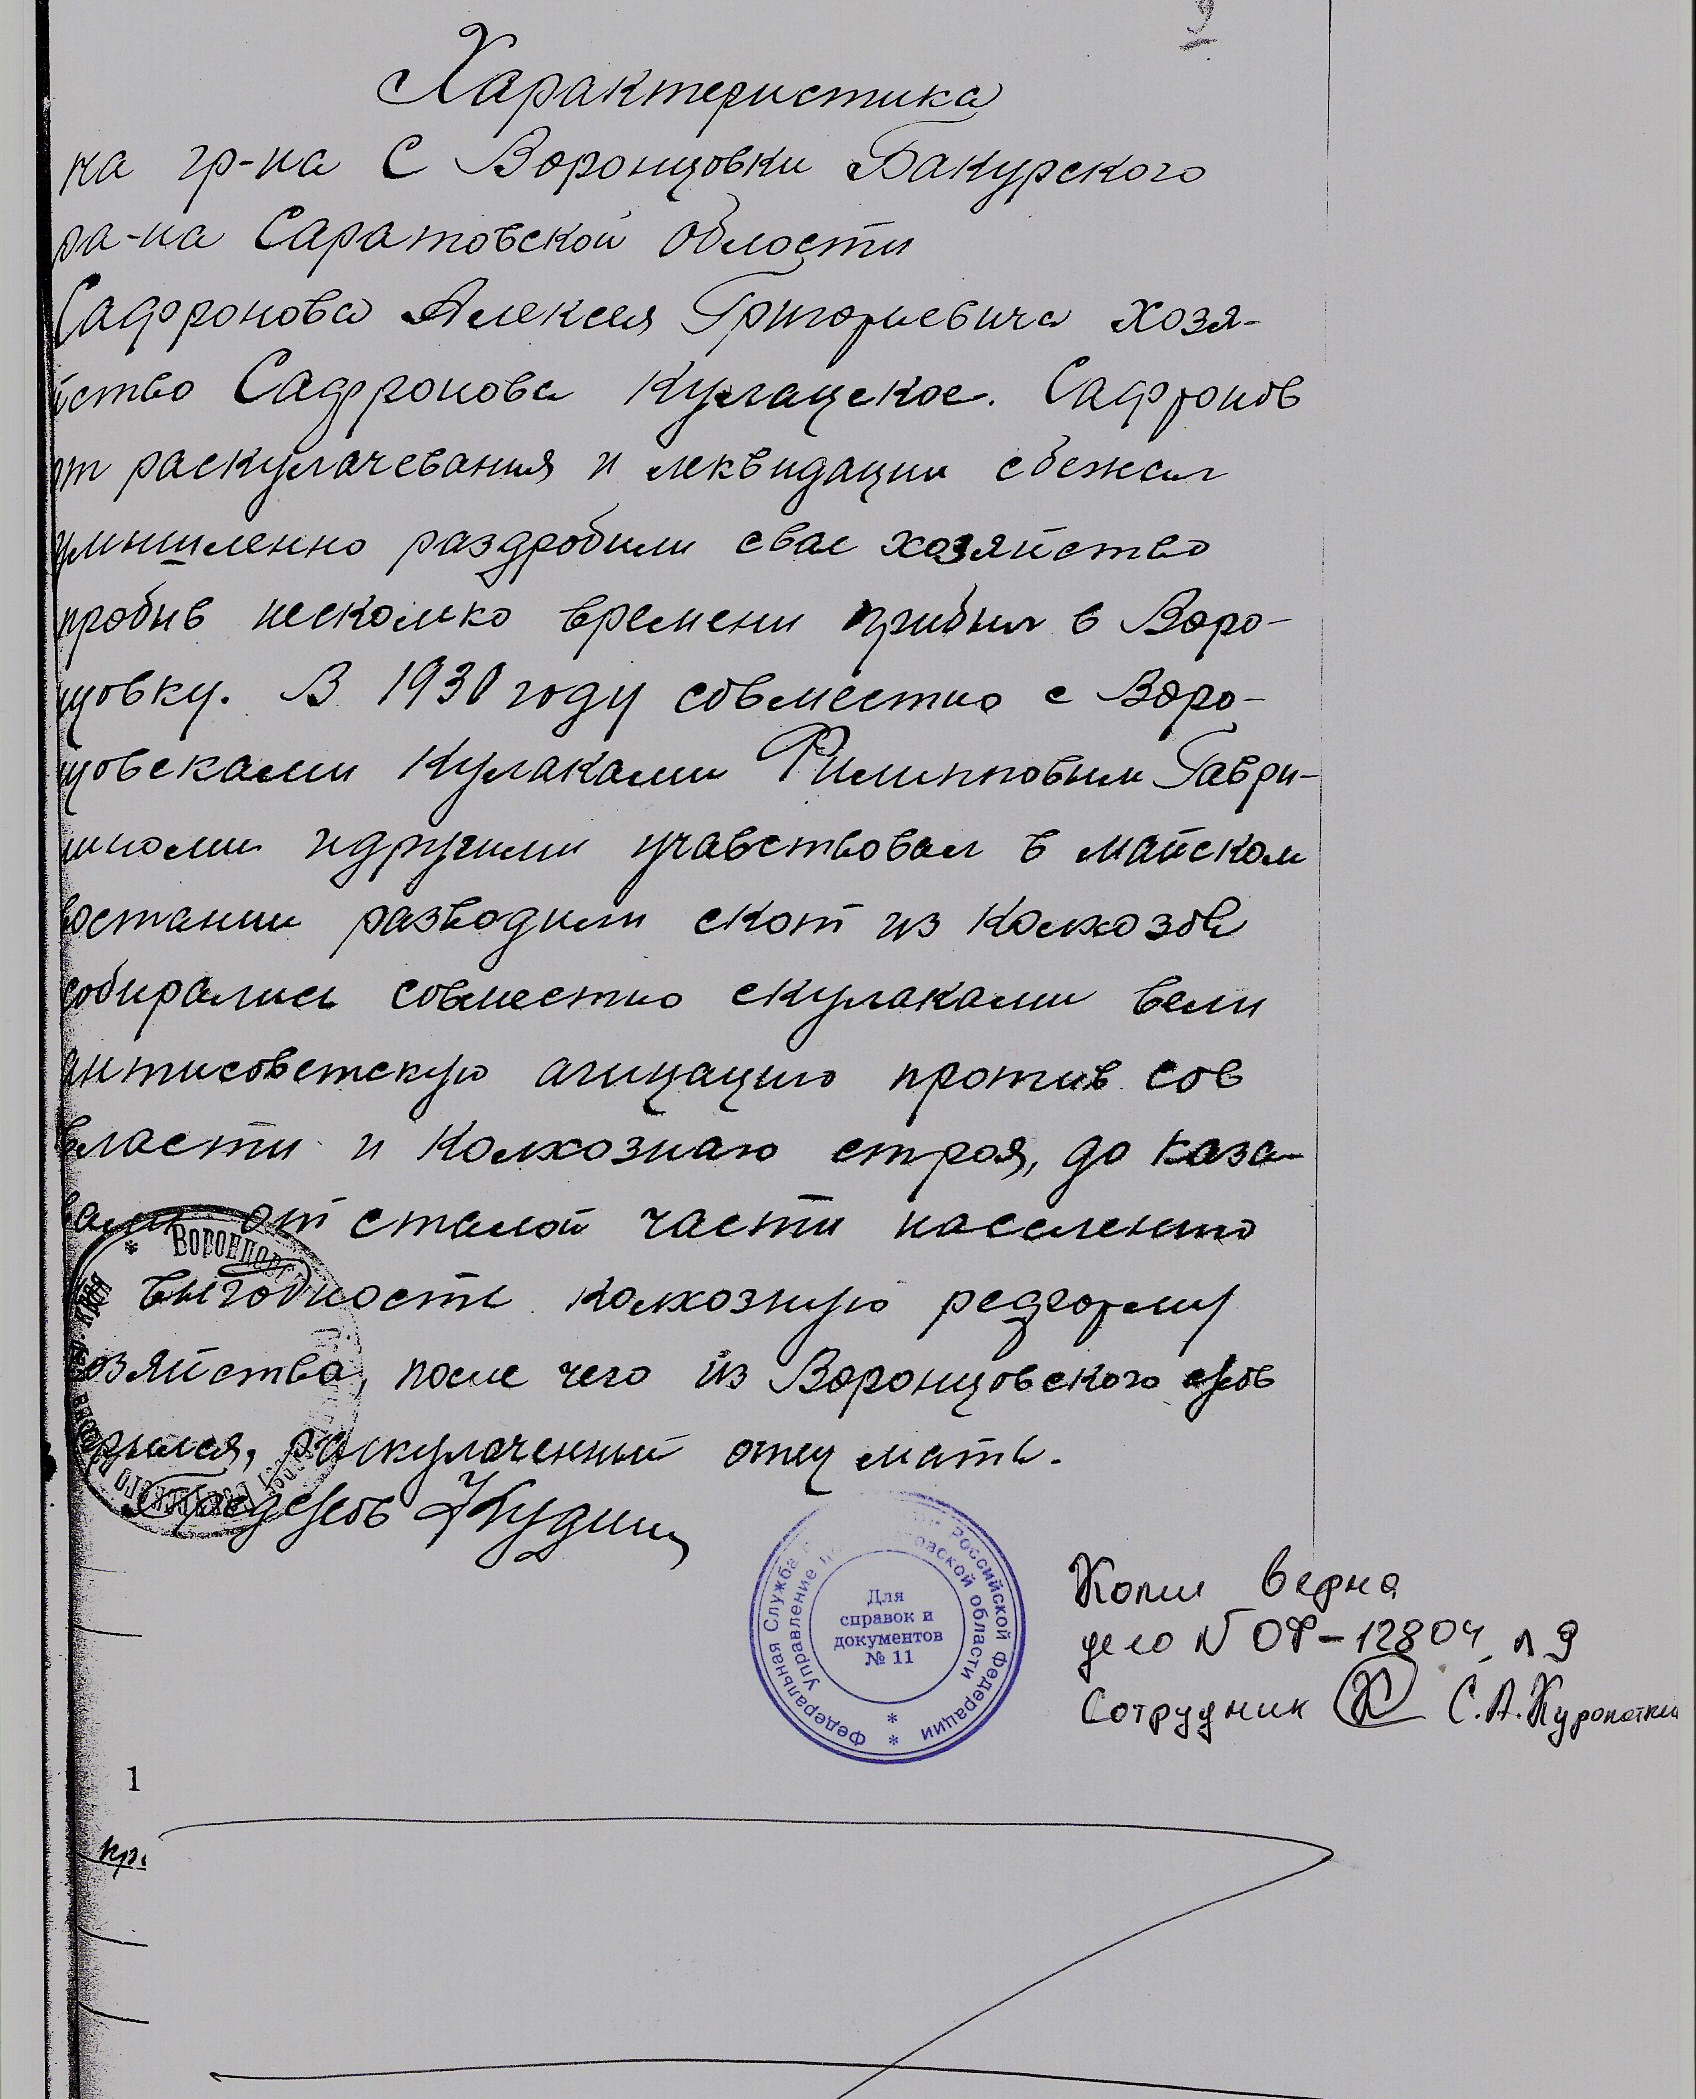 9
Характеристика
на гр-на С Воронцовки Бакурского
ра-на Саратовской области
Сафронова Алексея Григориевича хозя-
йство Сафронова Кулацское. Сафронов
от раскулачевания и леквидации сбежал
умышленно раздробили свае хозяйство
пробыв несколько времени прибыл в Воро-
цовку. В 1930 году совместно с Воро-
цовсками Кулаками Филипповым Гаври-
школи идругими учавствовал в майском
востании разводили скот из колхозов
собирались совместно скулаками вели
антисоветскую агицацию против сов
власти и Колхознаю строя, до каза-
вали отсталой части населению
выгодность колхозную редформу
хозяйства, после чего из Воронцовского с/сов
скрылся, раскулаченный отец мать.
Пред с/сов Кудин
Воронцовск
Федеральная Служба Российской Федерации
Управление по области
Для
справок и
документов
№ 11
Копия верна
дело N ОФ-12804, л 9
Сотрудник С.А.Куропаткин
1
пр.